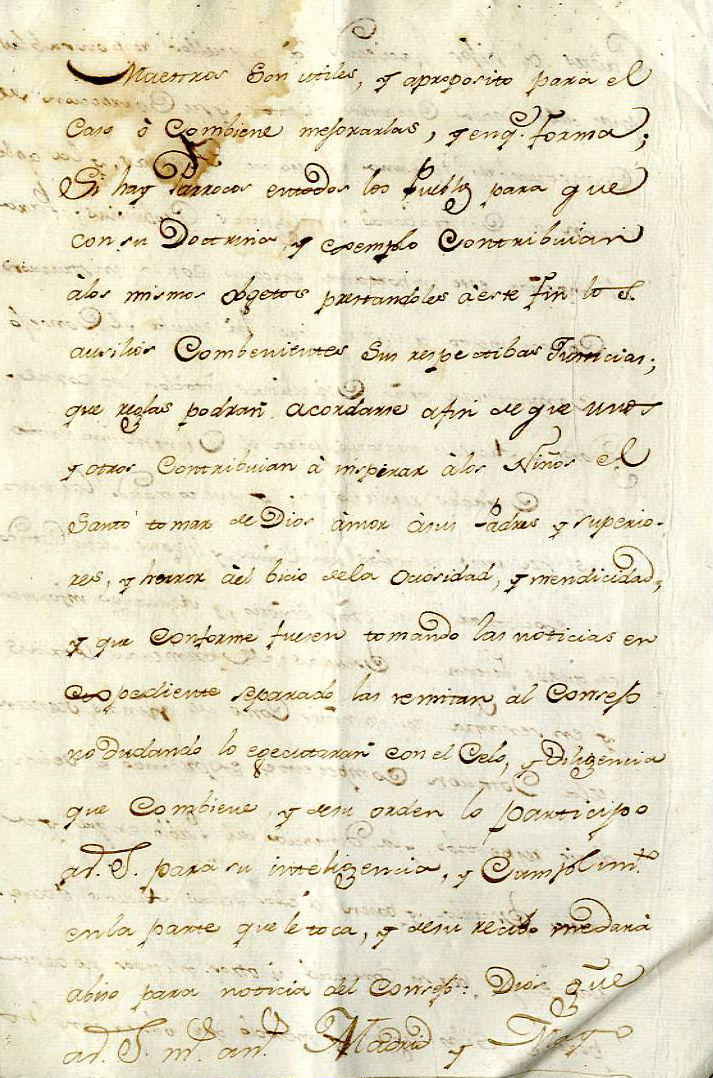 Maestros son utiles, y aproposito para el
Caso ò Combiene mejorarlas, y enq.e forma;
Si hay Parrocos entodos los Pueblos para que
con su Doctrina, y exemplo Contribuian
àlos mismos obgetos prestandoles àeste fin lo S.
ausilios Combenientes sus respectibas Justicias;
que reglas podran acordarse afin de que unos
y otros Contribuian à inspirar àlos Niños el
Santo temor de Dios àmor àsus Padres y superio-
res, y horror àel bicio dela Ociosidad, y mendicidad,
y que Conforme fuesen tomando las noticias en
expediente separado las remitan al Consejo
no dudando lo egecutaran con el Celo, y Diligencia
que Combiene, y desu orden lo participo
aV. S. para su inteligencia, y Cumplim.to
enla parte que le toca, y desu recibo medarà
abiso para noticia del Consejo: Dios gue
aV. S. m.s an.s Madrid y Mayo